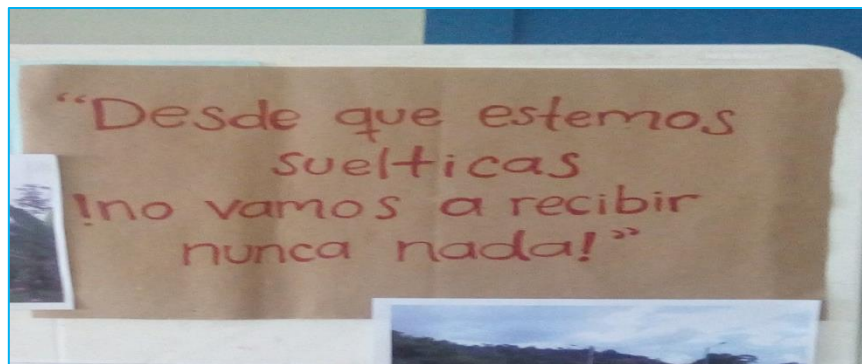 “Desde que estemos
suelticas
!no vamos a recibir
nunca nada!”